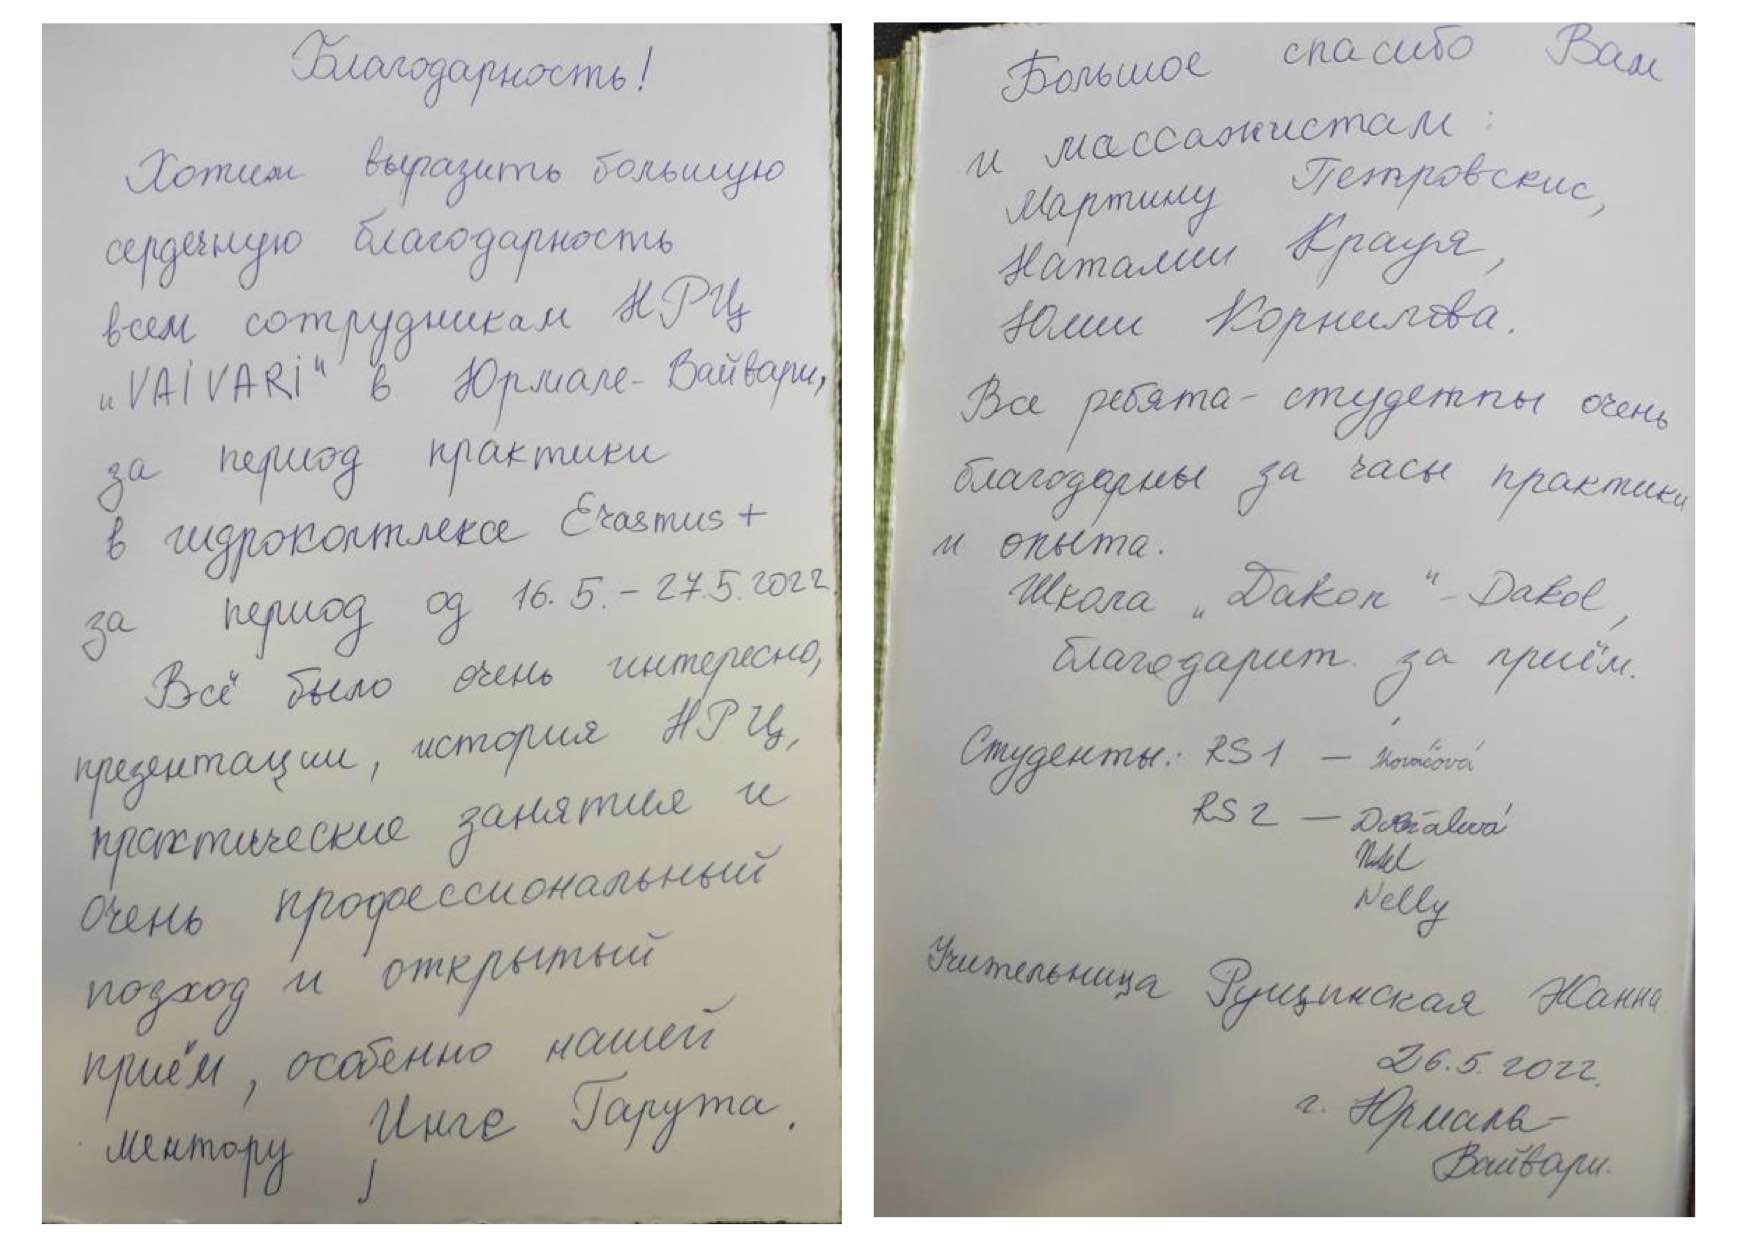 Благодарность!
Хотим выразить большую
сердечную благодарность
всем сотрудникам НРЦ
„VAiVARi“ в Юрмале-Вайвари,
за период практики
в гидрокомплексе Erasmus+
за период од 16.5.-27.5.2022
Всё было очень интересно,
презентации, история НРЦ,
практические занятия и
очень профессиональный
позход и открытый
приём, особенно нашей
ментору Инге Гарута.
Большое спасибо Вам
и массажистам:
Мартину Петровскис,
Наталии Крауя,
Юлии Корнилова.
Все ребята-студенты очень
благодарны за часы практики
и опыта.
Школа „Дакол“-Dakol,
благодарит за приём.
Студенты: RS1 – Kováčová
RS2 –
Nelly
Учительница Рущинская Жанна
26.5.2022.
г. Юрмала-
Вайвари.